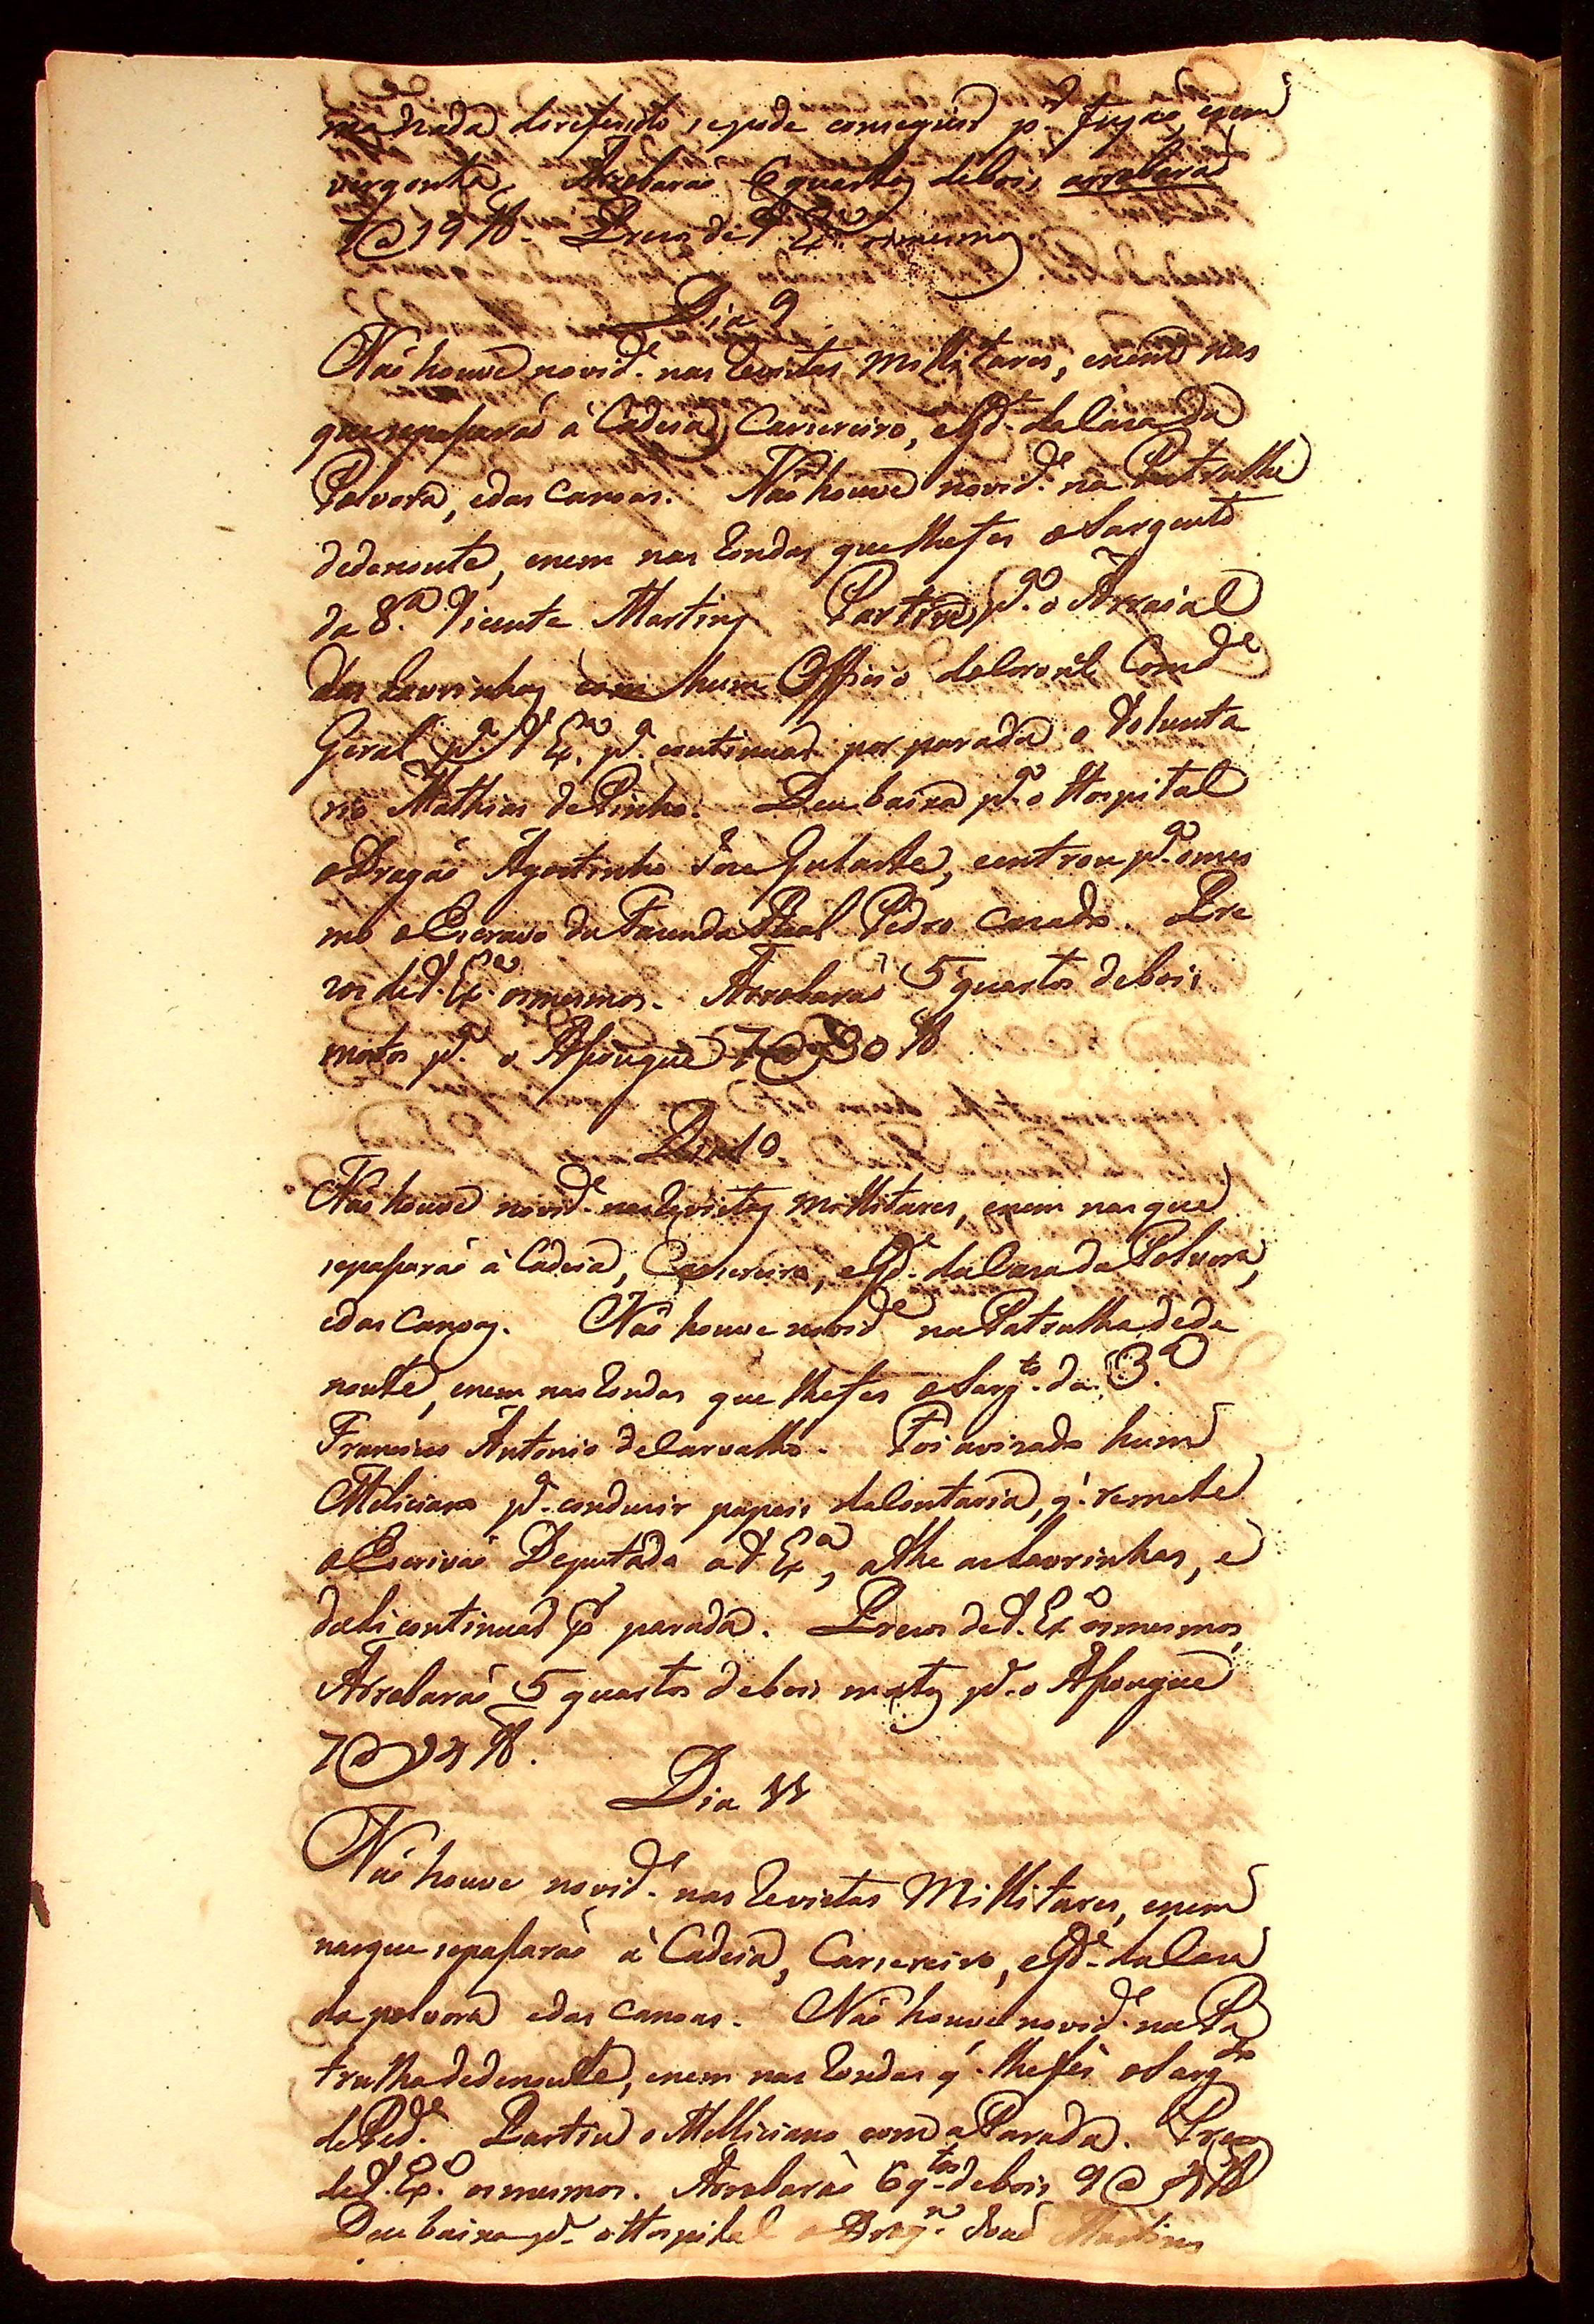 nada do referido, e pode conseguir p.ª fugao, e nem
vergonta. Arrobaraõ 6 quartos de bois arrobaraõ
@ 19 lb. Prezos de V. Ex.ª os mesmos
Dia 9
Naõ houve novid.e nas Revistas Millitares, e nem nas
que se passaraõ à Cadeia, Carsereiro, e G.de da Caza da
Polvora, e das Canoas. Naõ houve novid.e na Patrulha
dedenoute, e nem nas Rondas que lhe fes o Sargento
da 8.ª Vicente Martins Partiu p.ª o Arraial
das Lavrinhas com hum Officio do Coronel Comd.e
Geral p.ª V Ex.ª p.ª continuar por parada o Volunta
rio Mathias de Pinho. Deu baixa p.ª o Hospital
o Dragaõ Agostinho Joze Gularte, e entrou p.ª o mes
mo o Escravo da Fazenda Real Pedro Cazado. Pre
zos de V. Ex.ª os mesmos. Arrobaraõ 5 quartos de bois
mortos p.ª o Assougue 7 @ 30 lb
Dia 10
Naõ houve novid.e nas Revistas Millitares, e nem nas que
se passaraõ à Cadeia, Carsereiro, e G.de da Caza da Polvora,
e das Canoas. Naõ houve novid.e na Patrulha dede
noute, e nem nas Rondas que lhe fes o Sarg.to da 3.ª
Francisco Antonio de Carvalho. Foi avizado hum
Miliciano p.ª conduzir papeis da Contaria, q. remete
o Escrivaõ Deputado a V Ex.ª, athe as Lavrinhas, e
dali continuar p.r parada. Prezos de V. Ex.ª os mesmos
Arrobaraõ 5 quartos de bois mortos p.ª o Assougue
7 @ 24 lb.
Dia 11
Naõ houve novid.e nas Revistas Millitares, e nem
nas que se passaraõ à Cadeia, Carsereiro, e G.de da Caza
da polvora e das Canoas. Naõ houve novid.e na Pa
trulha dedenoute, e nem nas Rondas q. lhe fes o Sarg.to
de Ped.e Partiu o Milliciano com a Parada. Prezos
de V. Ex.ª os mesmos. Arrobaraõ 6 q.tos de bois 9 @ lb
Deu baixa p.ª o Hospital o Drag.m Joaõ Martins